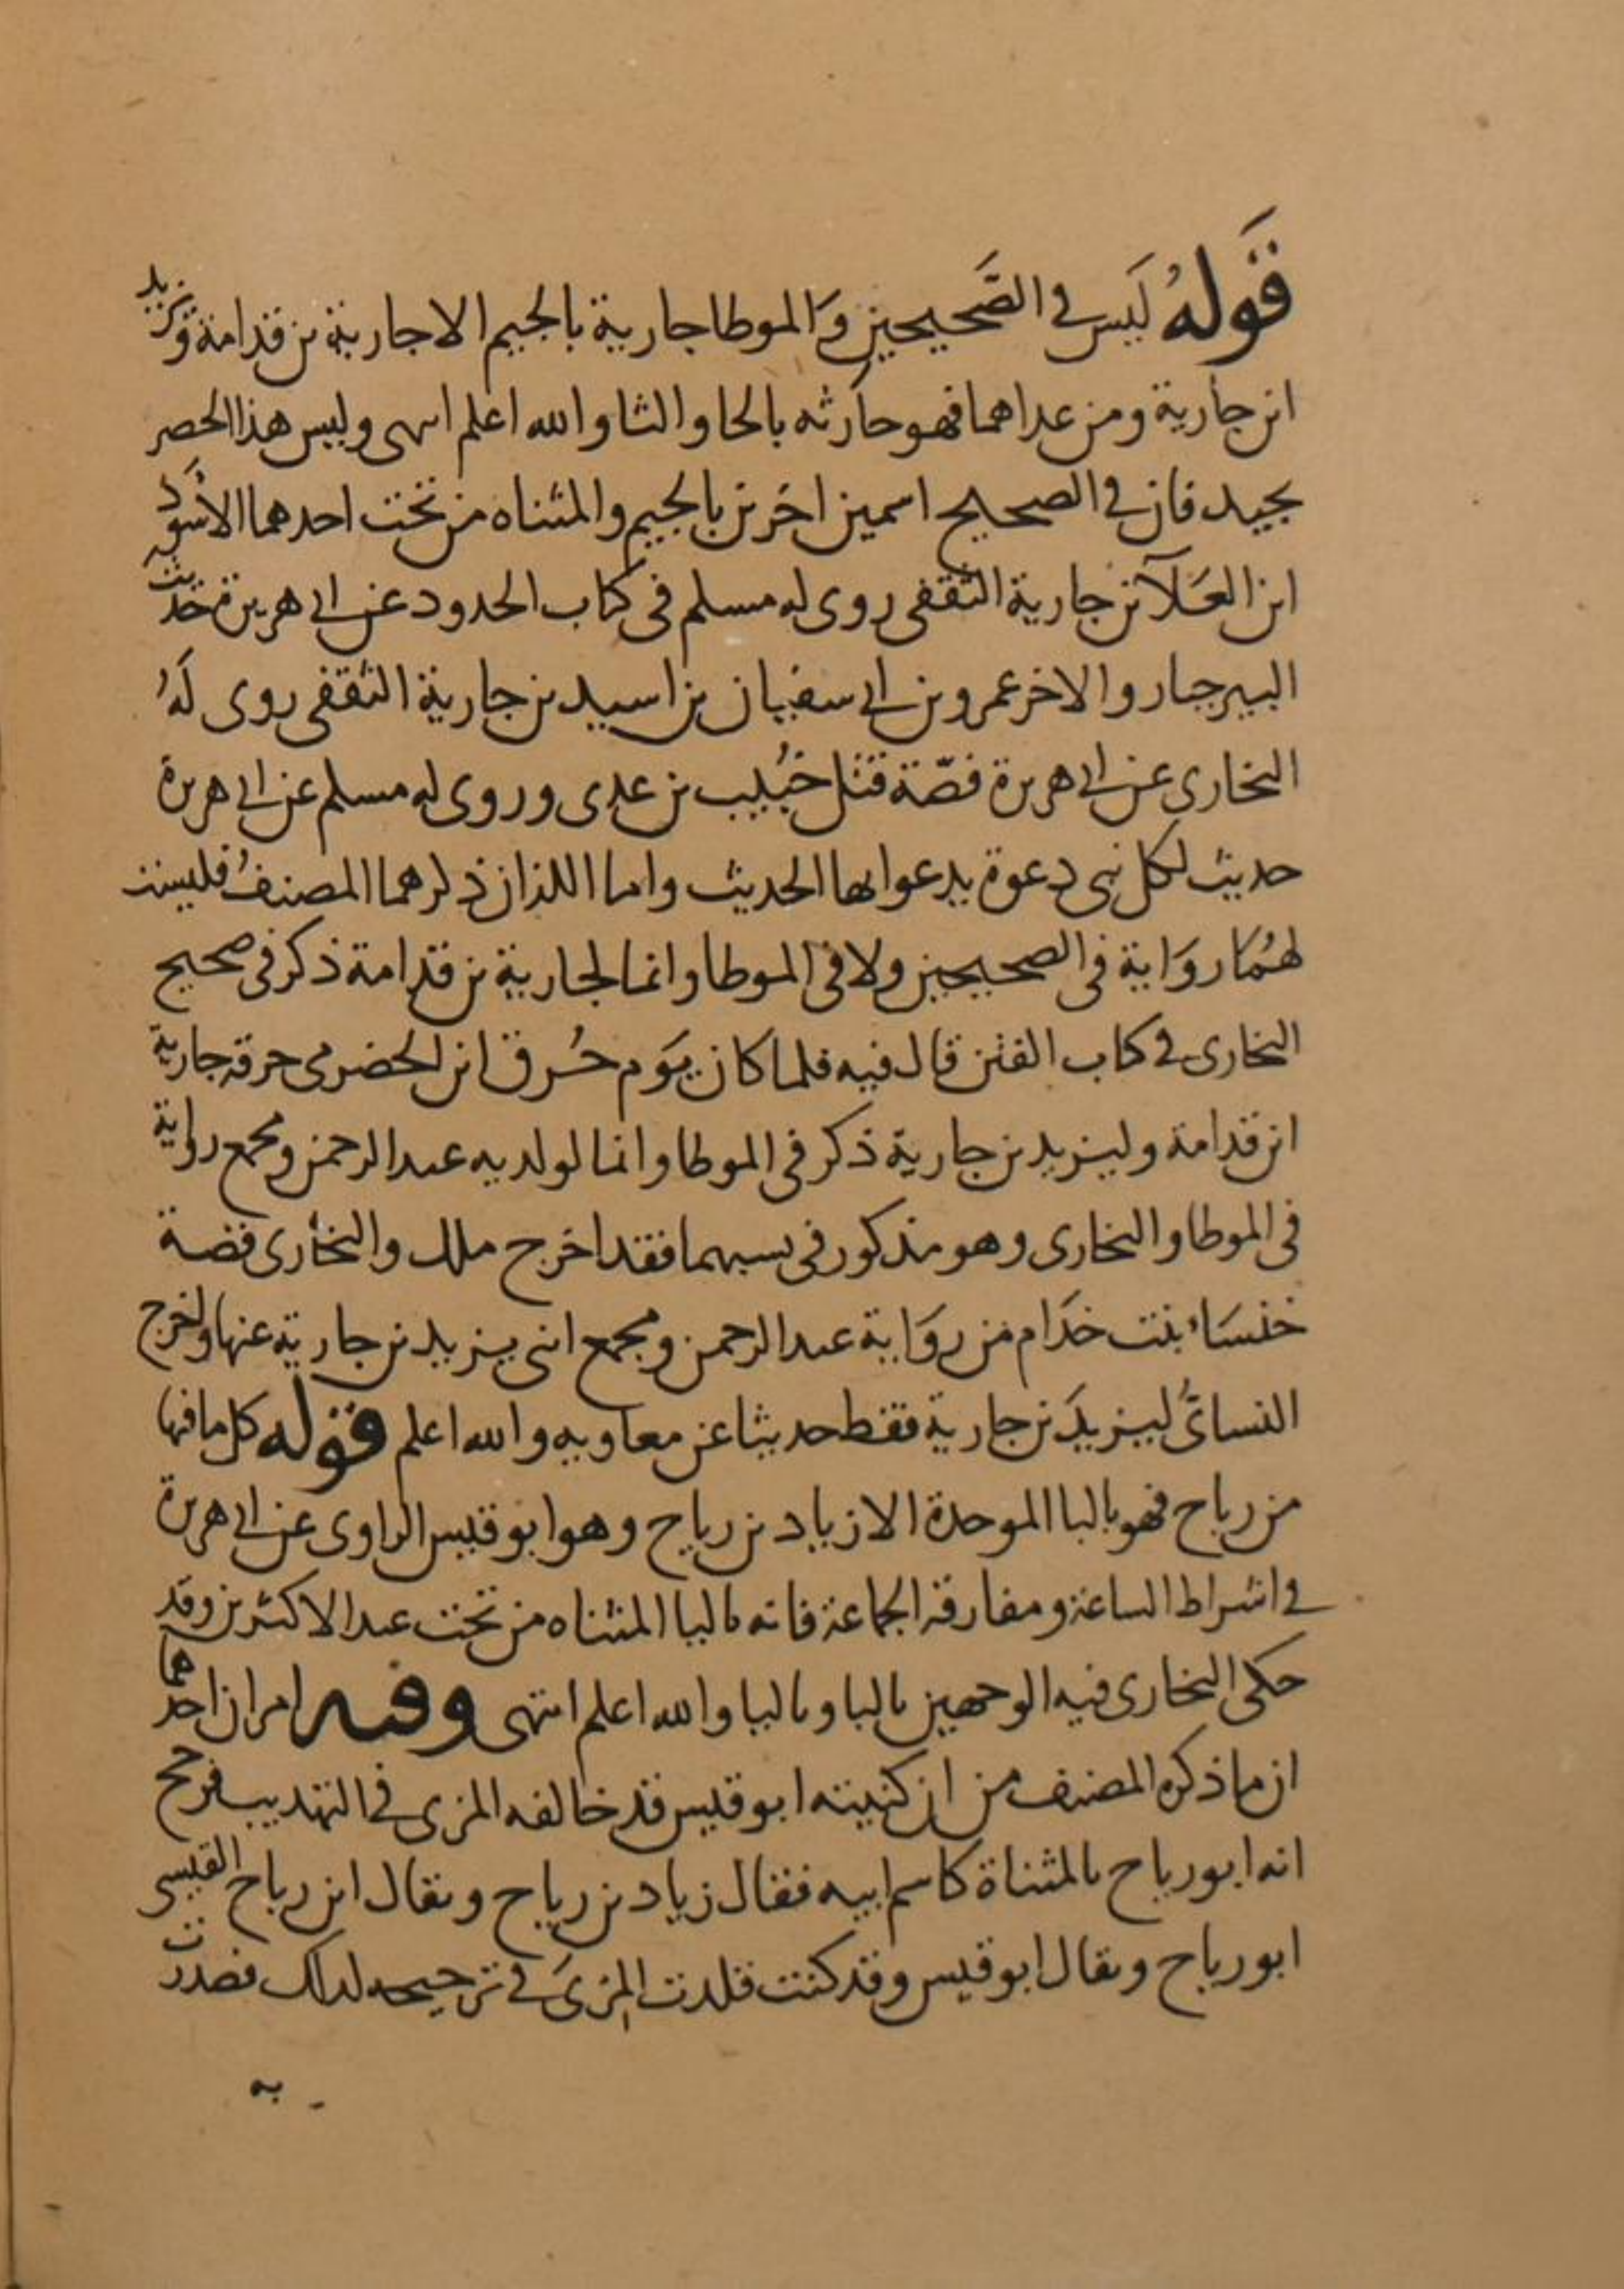 قَولهُ لَيس في الصَّحيحين وَالموطا جارية بالجيم الا جارية بن قدامة ويزيد
ابن جارية ومن عداهما فهو حارثه بالحا والثا والله اعلم انتهى وليس هذا الحصر
بجيد فان في الصحيح اسمين اخرين بالجيم والمثناه من تحت احدهما الأسود
ابن العَلآ بن جارية الثقفى روى له مسلم فى كتاب الحدود عن ابي هريرة حديث
البير جبار والاخر عمرو بن ابي سفيان بن اسيد بن جارية الثقفى روى لَهُ
البخارى عن ابي هريرة قصّة قتل خبُيب بن عدى وروى له مسلم عن ابي هريرة
حديث لكل نبى دعوة يدعوا بها الحديث واما اللذان ذكرهما المصنفُ فليست
لهُمَا روَاية فى الصحيحين ولا فى الموطا وانما لجارية بن قدامة ذكر فى صحيح
البخارى في كتاب الفتن قال فيه فلما كان يَوم حُرق ابن الحضرمى حرقه جارية
ابن قدامة وليزيد بن جارية ذكر فى الموطا وانما لولديه عبد الرحمن ومجمع رواية
فى الموطا والبخارى وهو مذكور فى نسبهما فقد اخرج ملك والبخارى قصة
خنسَاء بنت خدَام من روَاية عبد الرحمن ومجمع ابنى يزيد بن جارية عنها واخرج
النسائىُ ليزيدَ بن جارية فقط حديثا عن معاويه والله اعلم قوله كل ما فيها
من رباح فهو بالبا الموحدة الا زياد بن رياح وهو ابو قيس الراوى عن ابي هريرة
في اشراط الساعة ومفارقة الجماعة فانه باليا المثناه من تحت عند الاكثرين وقد
حكى البخارى فيه الوجهين بالبا وباليا والله اعلم انتهى وفيه امران احدهما
ان ما ذكره المصنف من ان كنيته ابو قيس قد خالفه المزى في التهذيب فرجح
انه ابو رياح بالمثناة كاسم ابيه فقال زياد بن رياح ويقال ابن رباح القيسى
ابو رياح ويقال ابو قيس وقد كنت قلدت المزىَ في ترجيحه لذلك فصدرت
به